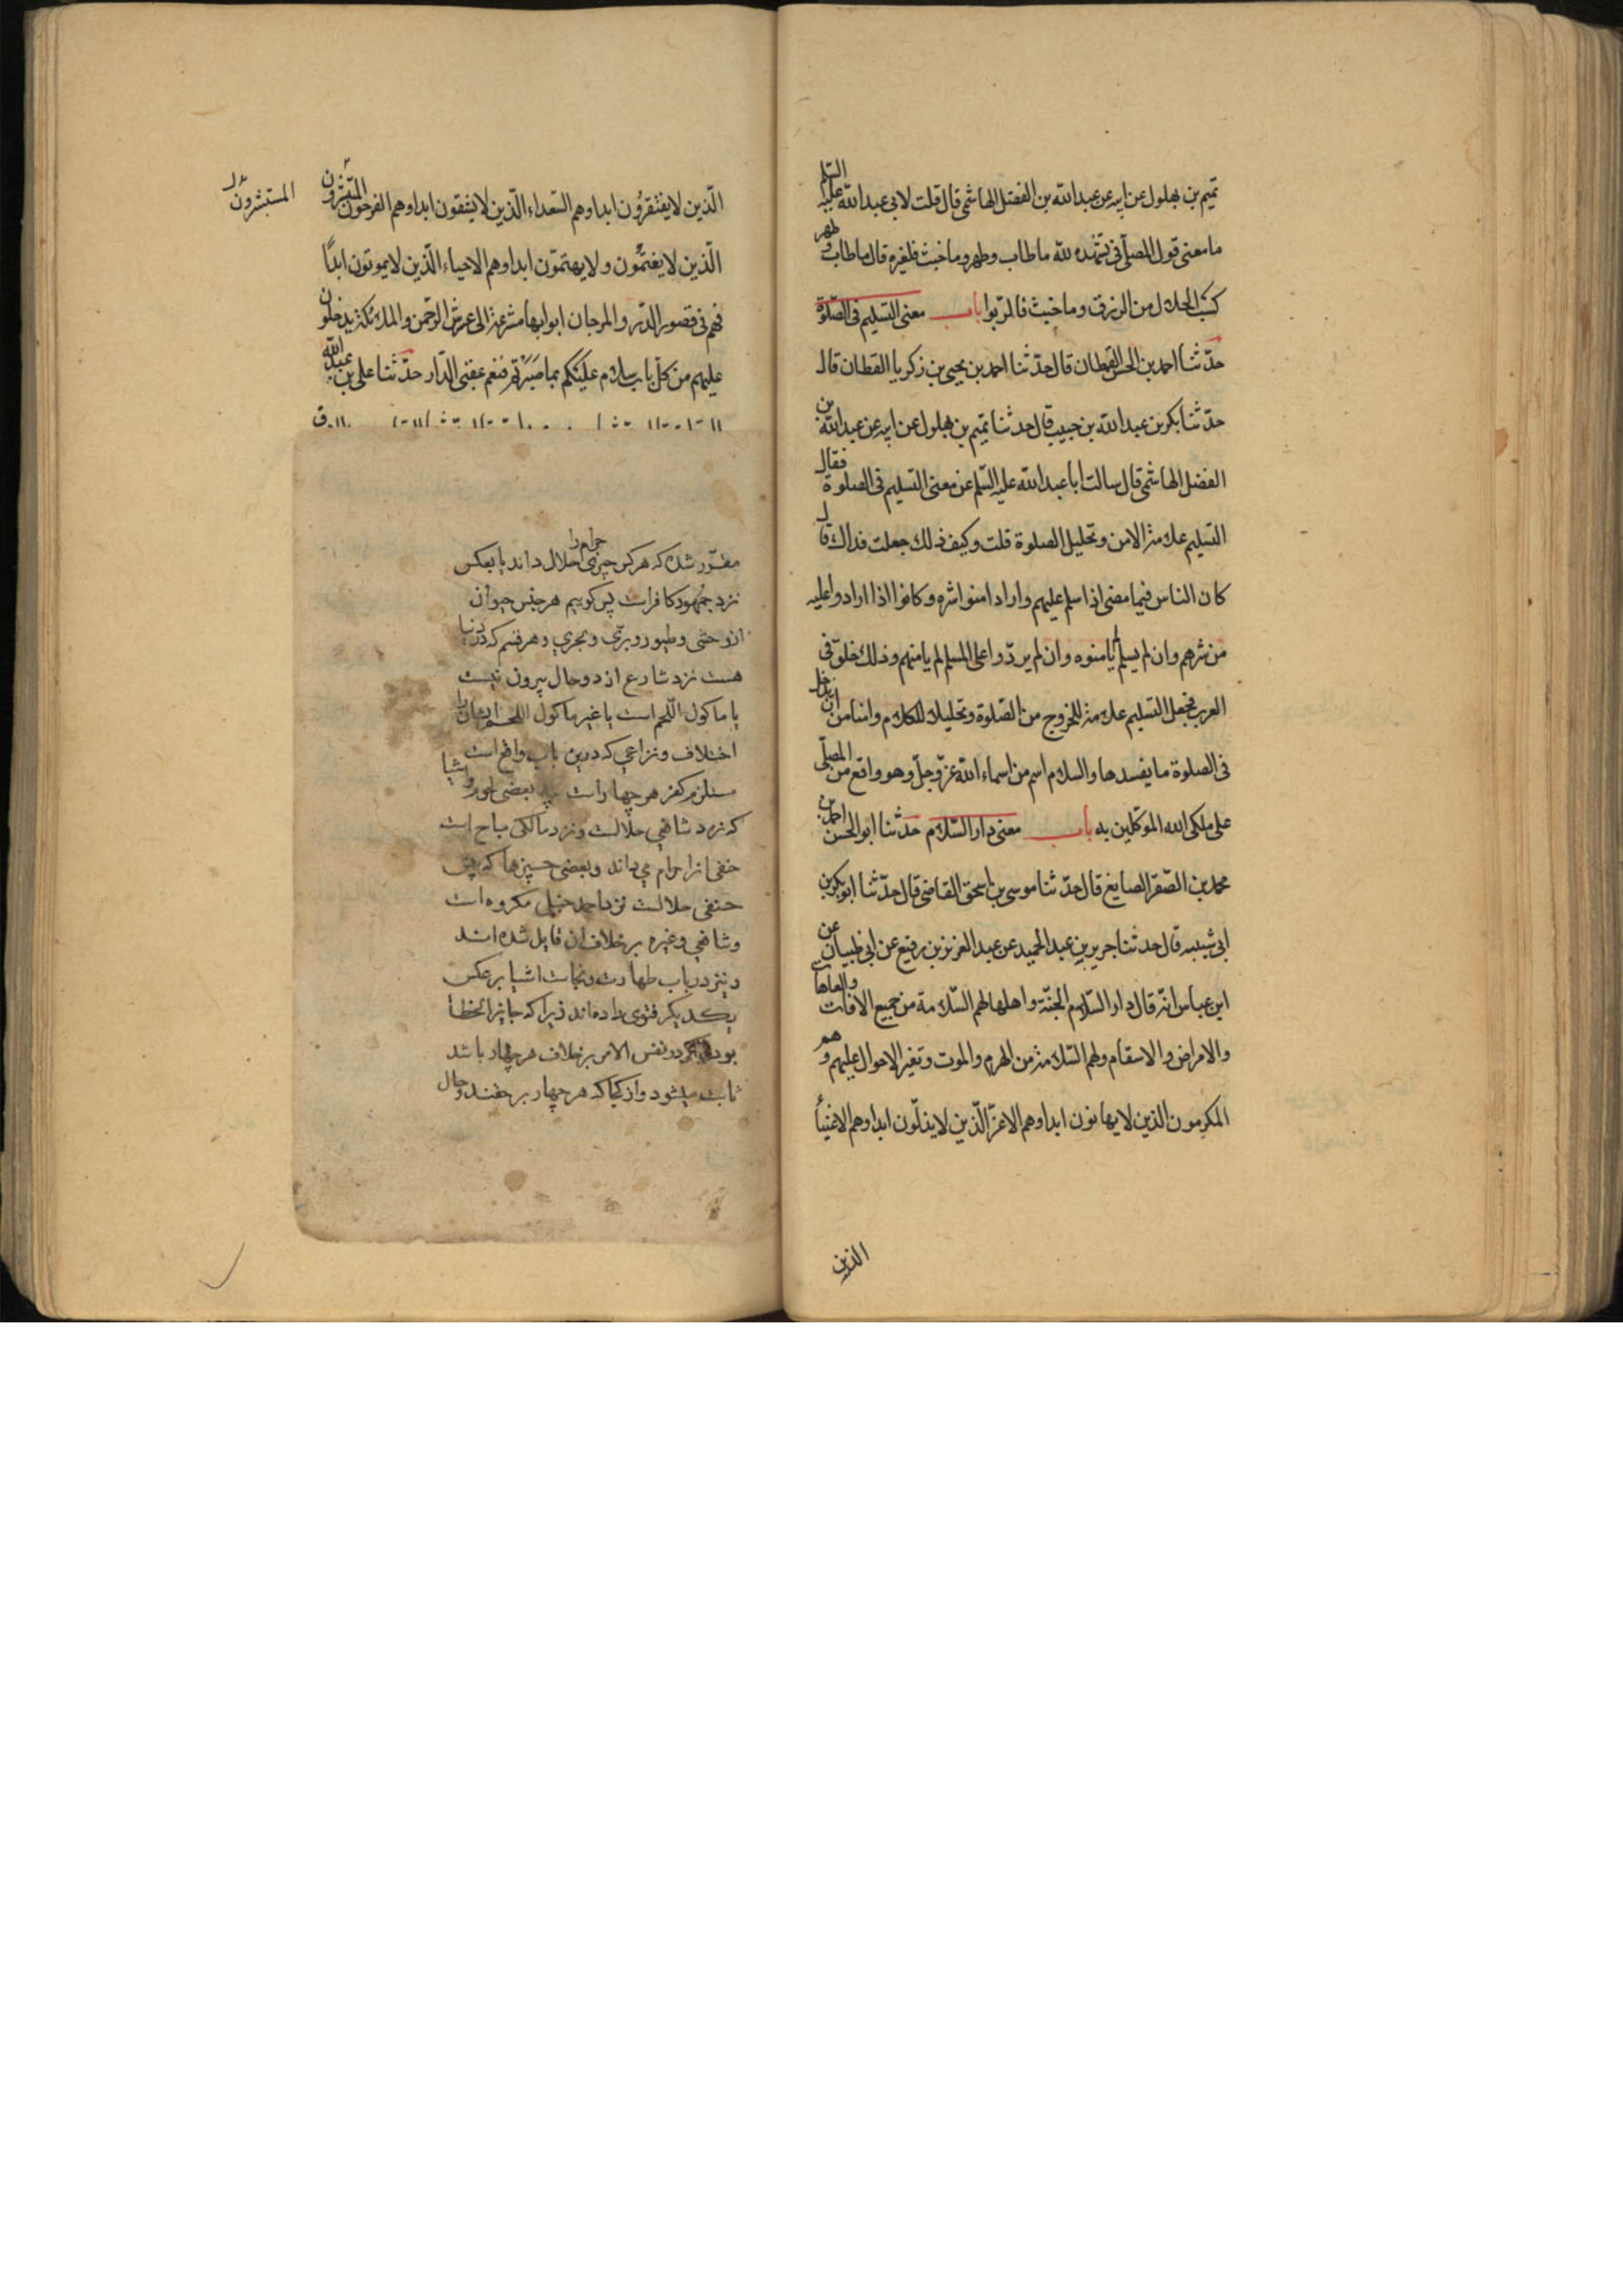 تميم بن بهلول عن ابيه عن عبدالله بن الفضل الهاشمى قال قلت لابى عبدالله عليه السلم
ما معنى قول المصلى فى تشهده لله ما طاب وطهر وما خبث فلغيره قال ما طاب وطهر
كسب الحلال من الرزق وما خبث فالربوا باب معنى التسليم فى الصلوة
حدثنا احمد بن الحسن القطان قال حدثنا احمد بن يحيى بن زكريا القطان قال
حدثنا بكر بن عبدالله بن حبيب قال حدثنا تميم بن بهلول عن ابيه عن عبدالله بن
الفضل الهاشمى قال سالت ابا عبدالله عليه السلم عن معنى التسليم فى الصلوة فقال
التسليم علامة الامن وتحليل الصلوة قلت وكيف ذلك جعلت فداك قال
كان الناس فيما مضى اذا سلم عليهم وارد امنوا شره وكانوا اذا ردوا عليه
من شرهم وان لم يسلم لم يامنوه وان لم يردوا على المسلم لم يامنهم وذلك خلق فى
العرب فجعل التسليم علامة للخروج من الصلوة وتحليلا للكلام وامنا من ان يدخل
فى الصلوة ما يفسدها والسلام اسم من اسماء الله عز وجل وهو واقع من المصلى
على ملكى الله الموكلين به باب معنى دار السلام حدثنا ابو الحسن احمد بن
محمد بن الصقر الصايغ قال حدثنا موسى بن اسحق القاضى قال حدثنا ابوبكر بن
ابى شيبه قال حدثنا جرير بن عبد الحميد عن عبد العزيز بن رفيع عن ابى ظبيان عن
ابن عباس انه قال دار السلام الجنة واهلها لهم السلامة من جميع الافات والعاهات
والامراض والاسقام ولهم السلامة من الهرم والموت وتغير الاحوال عليهم وهم
المكرمون الذين لا يهانون ابدا وهم الاعز الذين لا يذلون ابدا وهم الاغنيا
الذين
الذين لا يفتقرون ابدا وهم السعداء الذين لا يشقون ابدا وهم الفرحون
المستبشرون
الذين لا يغتمون ولا يهتمون ابدا وهم الاحياء الذين لا يموتون ابدا
فهم فى قصور الدر والمرجان ابوابها مشرعة الى عرش الرحمن والملائكة يدخلون
عليهم من كل باب سلام عليكم بما صبرتم فنعم عقبى الدار حدثنا على بن عبدالله
مقرر شده كه هركس چيزى حرام را حلال داند يا بعكس
نزد جمهور كافر است پس كوييم هر جنس حيوان
از وحشى وطيور وبرى وبحرى وهر قسم كه در دنيا
هست نزد شارع از دو حال بيرون نيست
يا ماكول اللحم است يا غير ماكول اللحم
اختلاف ونزاعى كه درين باب واقع است
مستلزم كفر هر چهار است بعضى
كه نزد شافعى حلالست ونزد مالكى مباح است
حنفى انرا حرام مى داند وبعضى چيزها كه پيش
حنفى حلالست نزد احمد حنبل مكروه است
وشافعى وغيره برخلاف ان قايل شده اند
ونيز در باب طهارت ونجاست اشيا برعكس
يكديكر فتوى داده اند زيرا كه جايز الخطا
بودن در نفس الامر برخلاف هر چهار باشد
ثابت ميشود واز كجا كه هر چهار برحقند وحال